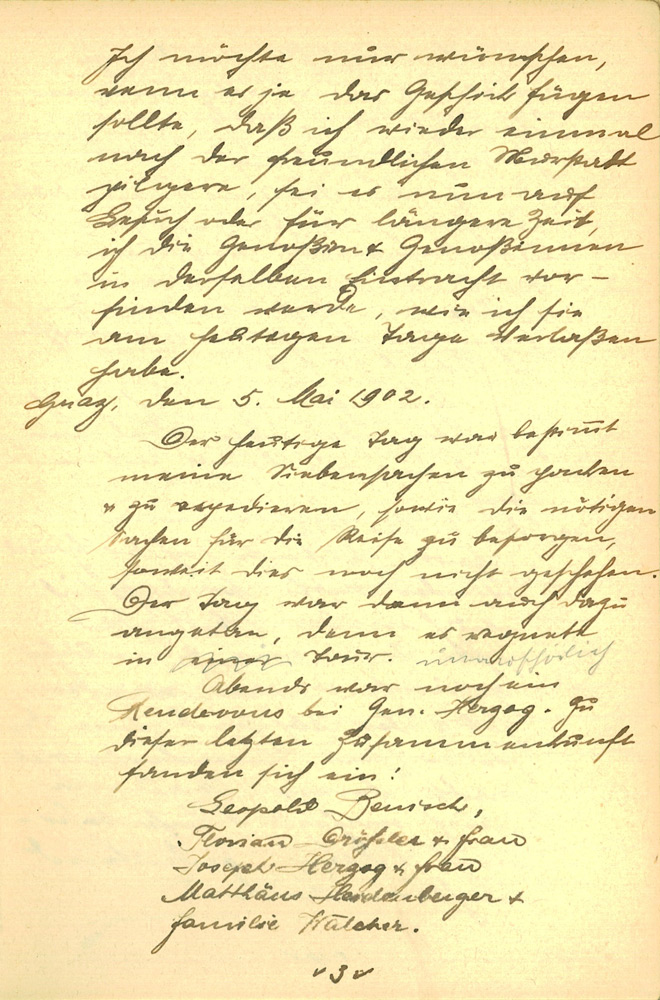 Ich möchte nur wünschen,
wenn es je das Geschick fügen
sollte, daß ich wieder einmal
nach der freundlichen Murstadt
pilgere, sei es nun auf
Besuch oder für längere Zeit,
ich die Genoßen & Genoßinnen
in derselben Eintracht vor-
finden werde, wie ich sie
am heutigen Tage verlaßen
habe.
Graz, den 5. Mai 1902.
Der heutige Tag war bestimt
meine Siebensachen zu packen
& zu expedieren, sowie die nötigen
Sachen für die Reise zu besorgen,
soweit dies noch nicht geschehen.
Der Tag war dann auch dazu
angetan, denn es regnete
in einer Tour. unaufhörlich
Abends war noch ein
Rendevous bei Gen. Herzog. Zu
dieser letzten Zusammenkunft
fanden sich ein:
Leopold Benisch,
Florian Größler & Frau
Joseph Herzog & Frau
Matthäus Heidenberger &
Familie Walcher.
3